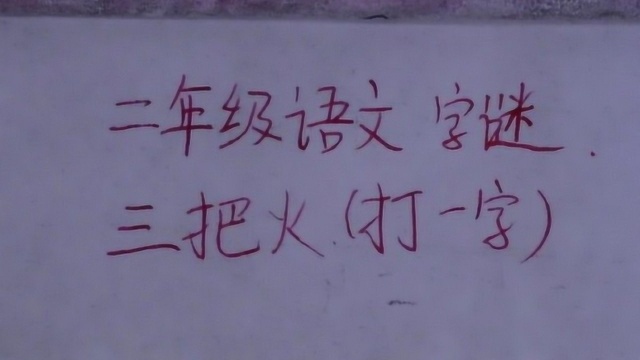 二年级语文 字谜.
三把火.(打一字)